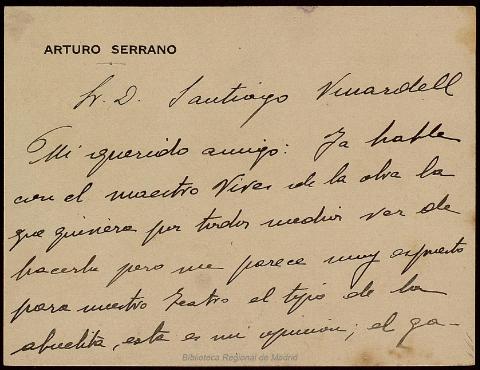 ARTURO SERRANO
Sr. D. Santiago Vinardell
Mi querido amigo: Ya hablé
con el maestro Vives de la obra la
que quisiera por todos medios ver de
hacerla pero me parece muy expuesto
para nuestro Teatro el tipo de la
abuelita, esta es mi opinión; el ga-
Biblioteca Regional de Madrid